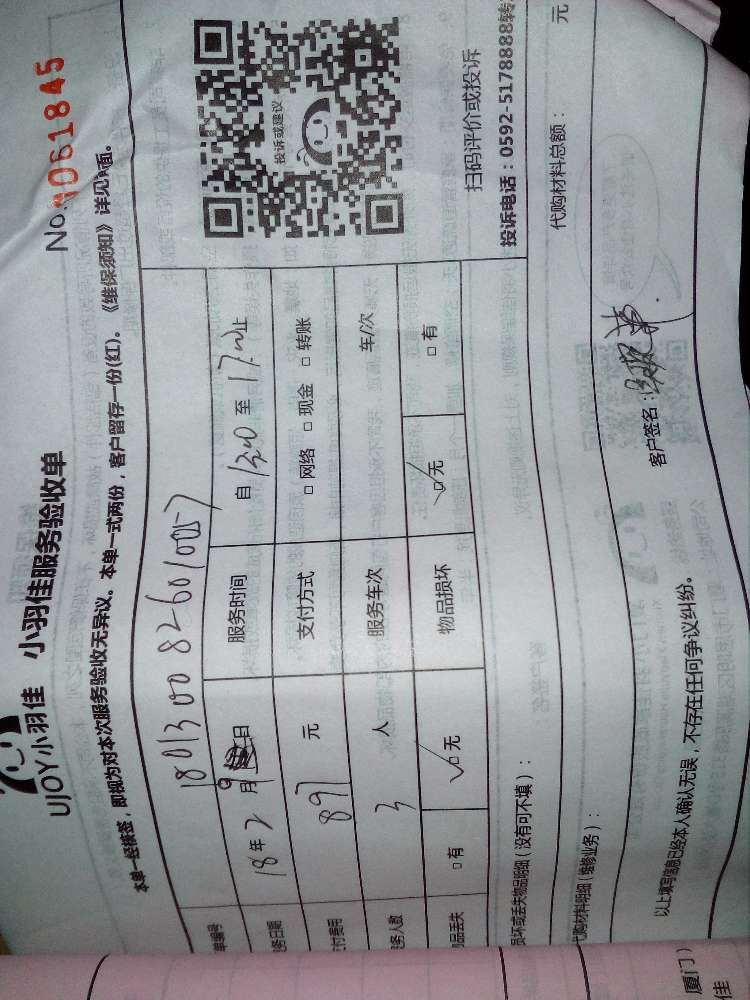 UJOY小羽佳 小羽佳服务验收单
No.1061845
本单一经核签，即视为对本次服务验收无异议。本单一式两份，客户留存一份(红)。《维保须知》详见背面。
单编号 18013008260100057
务日期 18年2月9日 服务时间 自 至17:00止
付费用 897元 支付方式 □网络 □现金 □转账
务人数 3人 服务车次 车/次
物品丢失 □有 ☑无 物品损坏 ☑无 □有
投诉或建议
扫码评价或投诉
投诉电话：0592-5178888转
损坏或丢失物品明细（没有可不填）：
代购材料明细（维修业务）：
代购材料总额： 元
以上填写信息已经本人确认无误，不存在任何争议纠纷。
客户签名：
厦门）
佳